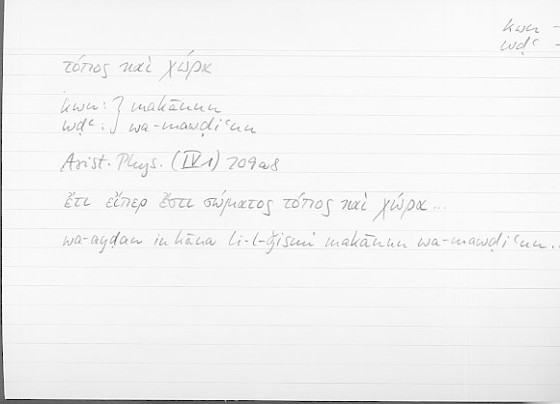 kwn –
wḍʿ –
τόπος καὶ χώρα
kwn : } makānun
wḍʿ : } wa-mawḍiʿun
Arist. Phys. (IV 1) 209a8
ἔτι εἴπερ ἔστι σώματος τόπος καὶ χώρα ...
wa-ayḍan in kāna li-l-ǧismi makānun wa-mawḍiʿun..